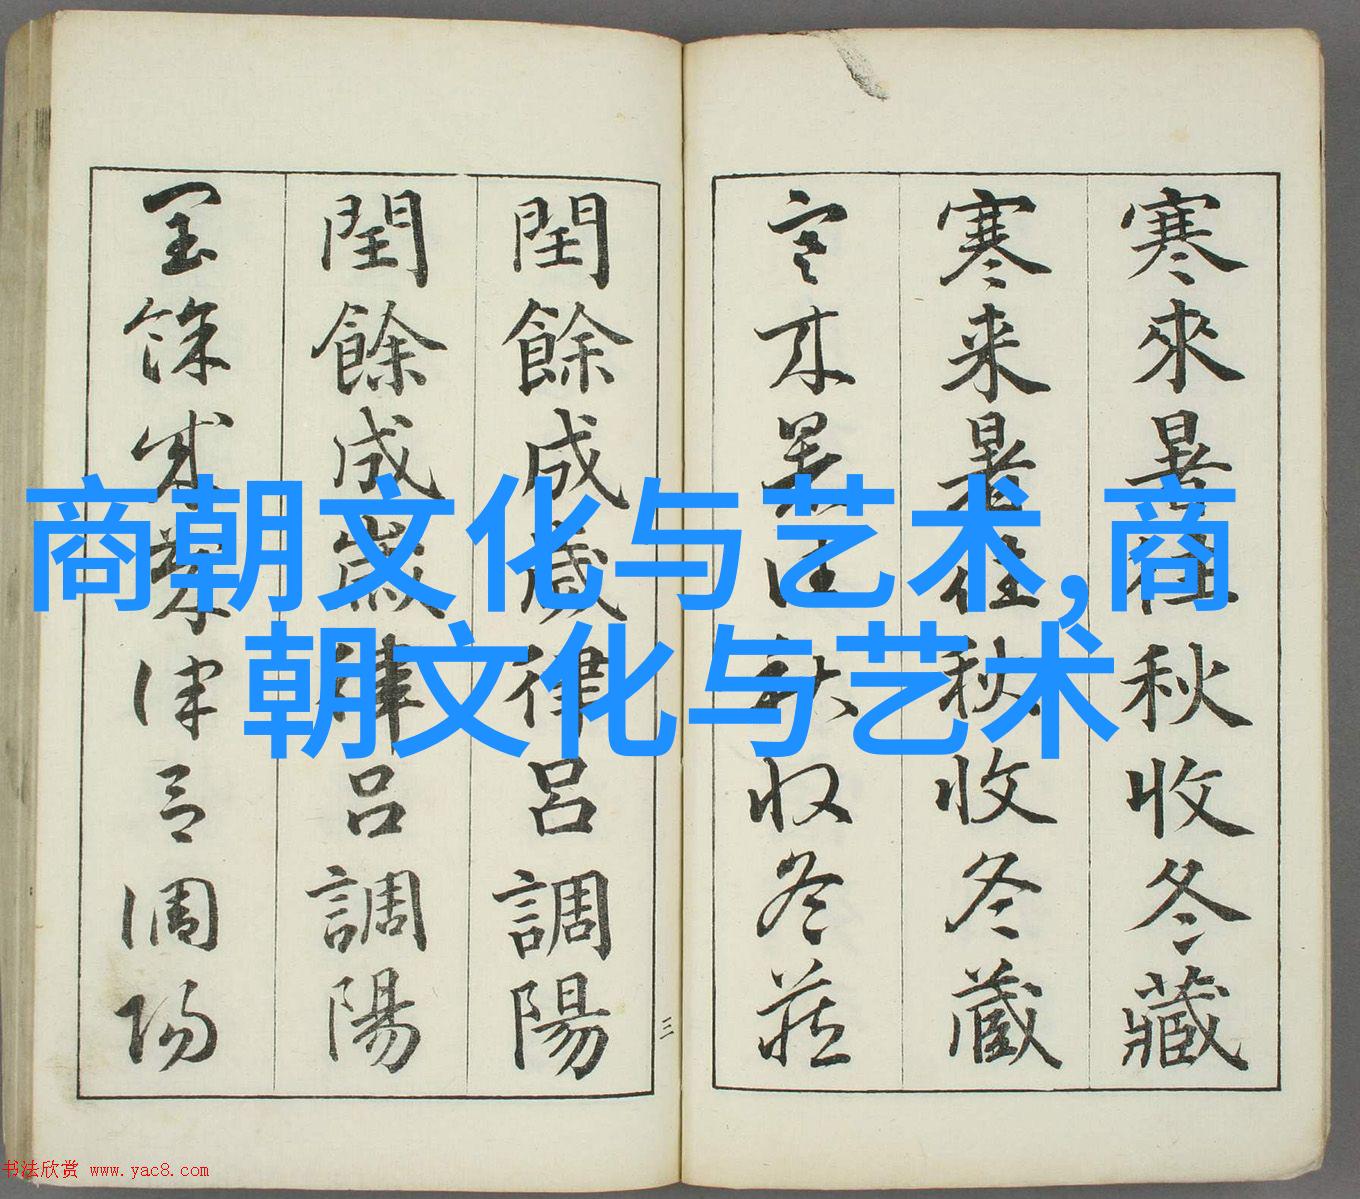 寒來暑往秋收冬藏
寒来暑往秋收冬蔵
寒来暑往秋收冬藏
三
閏餘成歲律呂調陽
閏餘成歲律呂調陽
閏餘成歲律呂調陽
商朝文化与艺术,商
朝文化与艺术
书法欣赏 www.yac8.com